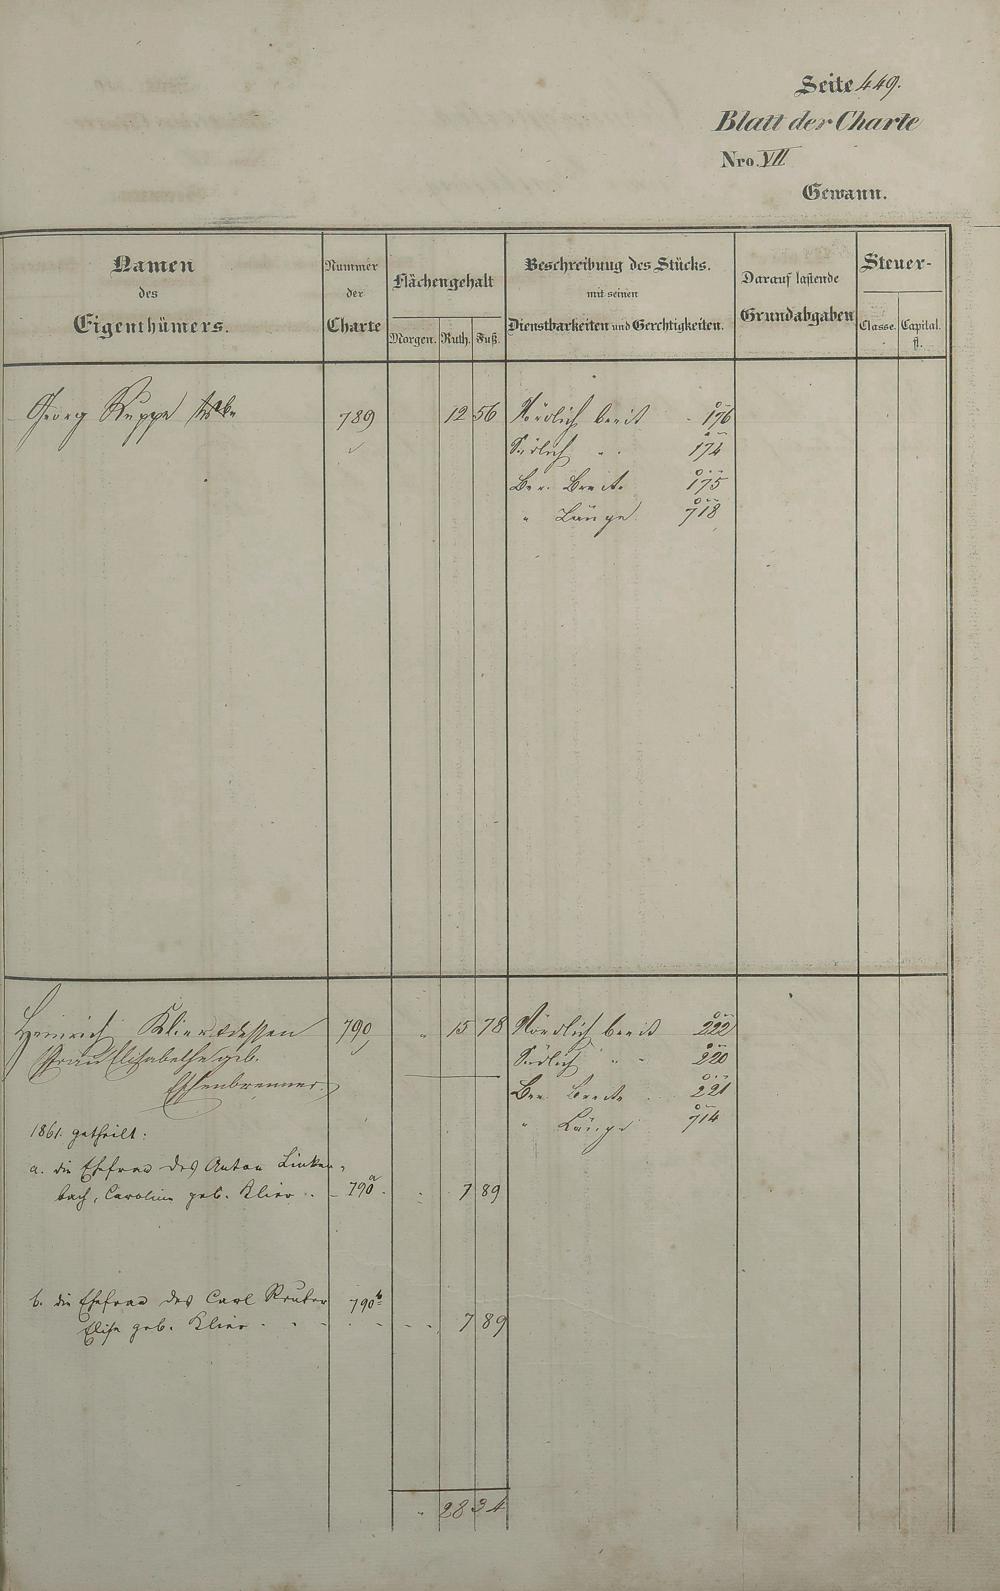 Seite 449.
Blatt der Charte
Nro. VII
Gewann.
Namen
des
Eigenthümers.
Nummer
der
Charte
Flächengehalt
Morgen. Ruth. Fuß.
Beschreibung des Stücks.
mit seinen
Dienstbarkeiten und Gerechtigkeiten.
Darauf lastende
Grundabgaben
Steuer-
Classe. Capital.
fl.
Georg Ruppe 789 12 56 Nördlich breit 176
Südlich " " 174
Ber. Breite 175
" Länge 718
Heinrich Klier & dessen 790 " 15 78 Nördlich breit 222
Frau Elisabetha geb. Südlich " " 220
Eschenbrenner. Ber. Breite 221
" Länge 714
1861. getheilt:
a. die Ehefrau des Anton Linken-
bach, Caroline geb. Klier 790a " 7 89
b. die Ehefrau des Carl 790b
Elise geb. Klier 7 89
" 28 34